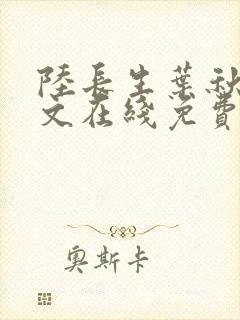 陸長生葉秋
文在綫免費
奧斯卡